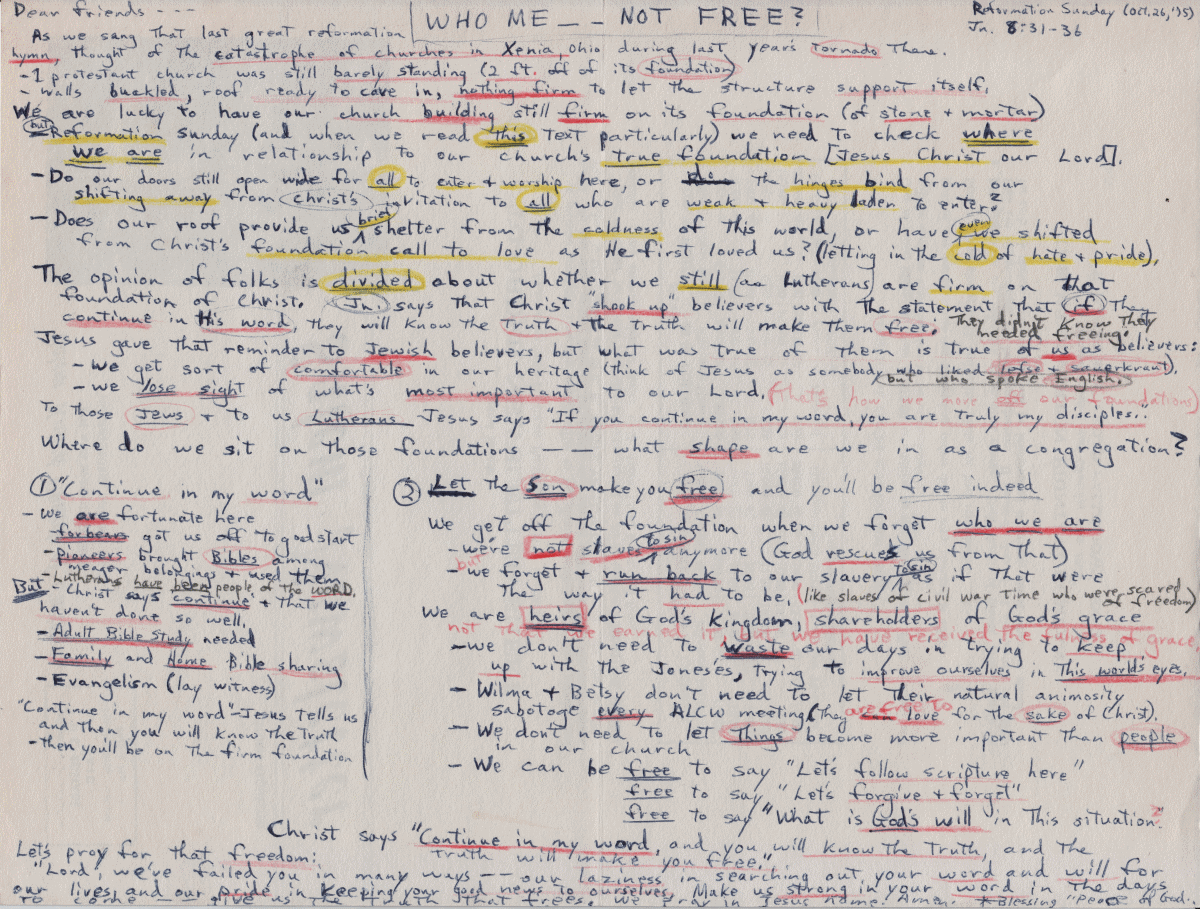 Dear friends - - -
WHO ME -- NOT FREE?
Reformation Sunday (Oct. 26, '75)
Jn. 8:31-36
As we sang that last great reformation
hymn, thought of the catastrophe of churches in Xenia, Ohio during last year's tornado there.
- 1 protestant church was still barely standing (2 ft. off of its foundation)
- walls buckled, roof ready to cave in, nothing firm to let the structure support itself.
We are lucky to have our church building still firm on its foundation (of stone + mortar)
but Reformation Sunday (and when we read this text particularly) we need to check where
we are in relationship to our church's true foundation [Jesus Christ our Lord].
- Do our doors still open wide for all to enter + worship here, or do the hinges bind from our
shifting away from Christ's invitation to all who are weak + heavy laden to enter?
- Does our roof provide us brief shelter from the coldness of this world, or have even we shifted
from Christ's foundation call to love as He first loved us? (letting in the cold of hate + pride).
The opinion of folks is divided about whether we still (as Lutherans) are firm on that
foundation of Christ. Jn. says that Christ "shook up" believers with the statement that if they
continue in His word, they will know the truth + the truth will make them free. They didn't know they
needed freeing.
Jesus gave that reminder to Jewish believers, but what was true of them is true of us as believers:
- we get sort of comfortable in our heritage (think of Jesus as somebody who liked lefse + sauerkraut),
but who spoke English.
- we lose sight of what's most important to our Lord. (that's how we move off our foundations)
To those Jews + to us Lutherans Jesus says "If you continue in my word, you are truly my disciples."
Where do we sit on those foundations -- what shape are we in as a congregation?
① "Continue in my word"
- We are fortunate here
forbears got us off to good start
- pioneers brought Bibles among
meager belongings + used them
- Lutherans have been people of the WORD.
But - Christ says continue + that we
haven't done so well.
- Adult Bible Study needed
- Family and Home Bible sharing
- Evangelism (lay witness)
"Continue in my word" - Jesus tells us
and then you will know the truth
- then you'll be on the firm foundation
② Let the Son make you free and you'll be free indeed
We get off the foundation when we forget who we are
- we're not slaves to sin anymore (God rescues us from that)
but
- we forget + run back to our slavery to sin as if that were
the way it had to be. (like slaves of civil war time who were scared
of freedom)
We are heirs of God's kingdom, shareholders of God's grace
not that we earned it, but we have received the fulness of grace.
- we don't need to waste our days in trying to keep
up with the Joneses, trying to improve ourselves in this world's eyes.
- Wilma + Betsy don't need to let their natural animosity
sabotage every ALCW meeting (they are free to love for the sake of Christ).
- We don't need to let things become more important than people
in our church
- We can be free to say "Let's follow scripture here"
free to say "Let's forgive + forget"
free to say "What is God's will in this situation?"
Christ says "Continue in my word, and you will know the truth, and the
truth will make you free."
Let's pray for that freedom:
"Lord, we've failed you in many ways -- our laziness in searching out your word and will for
our lives, and our pride in keeping your good news to ourselves. Make us strong in your word in the days
to come - give us the truth that frees. We pray in Jesus name. Amen. * Blessing "peace of God..